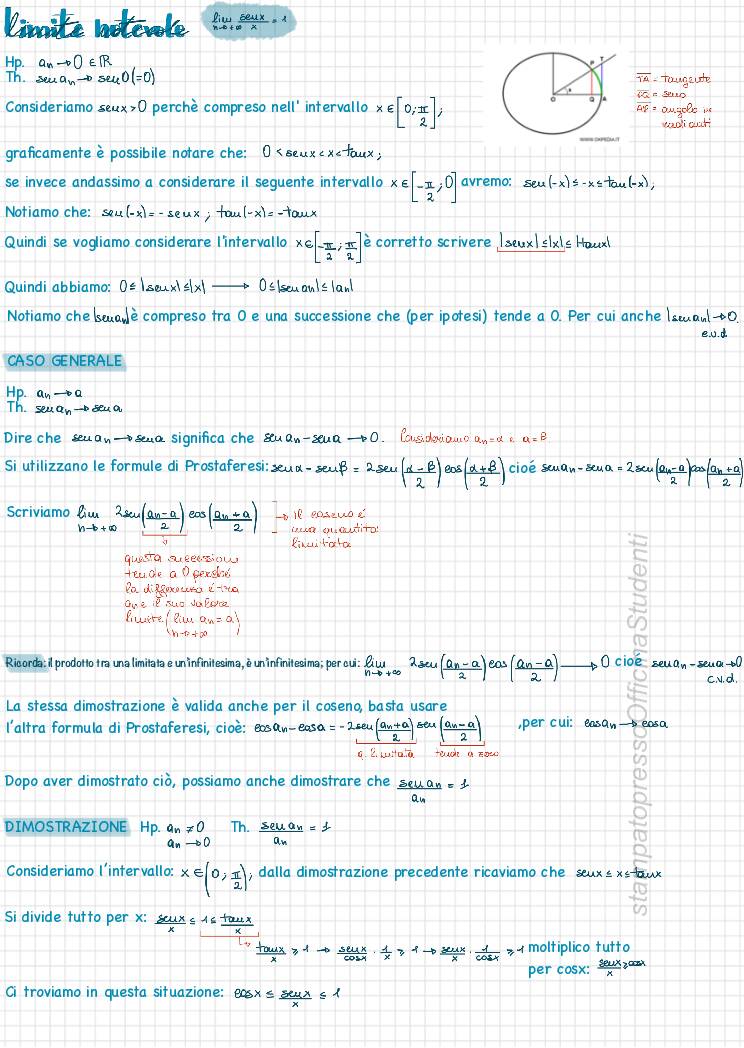 limite notevole lim n→+∞ senx/x = 1
Hp. an→0 ∈ℝ
Th. senan→sen0(=0)
P T
O x Q A
WWW.OKPEDIA.IT
TA = Tangente
PQ = seno
AP = angolo in
radianti
Consideriamo senx>0 perchè compreso nell' intervallo x∈[0;π/2];
graficamente è possibile notare che: 0<senx<x<tanx;
se invece andassimo a considerare il seguente intervallo x∈[-π/2;0] avremo: sen(-x)≤-x≤tan(-x);
Notiamo che: sen(-x)=-senx; tan(-x)=-tanx
Quindi se vogliamo considerare l'intervallo x∈[-π/2;π/2] è corretto scrivere |senx|≤|x|≤|tanx|
Quindi abbiamo: 0≤|senx|≤|x| → 0≤|senan|≤|an|
Notiamo che |senan| è compreso tra 0 e una successione che (per ipotesi) tende a 0. Per cui anche |senan|→0.
c.v.d
CASO GENERALE
Hp. an→a
Th. senan→sena
Dire che senan→sena significa che senan-sena→0. Consideriamo an=α e a=β
Si utilizzano le formule di Prostaferesi: senα-senβ = 2sen(α-β/2)cos(α+β/2) cioé senan-sena=2sen(an-a/2)cos(an+a/2)
Scriviamo lim n→+∞ 2sen(an-a/2)cos(an+a/2) → il coseno é
una quantità
limitata
questa successioni
tende a 0 perché
la differenza é tra
an e il suo valore
limite (lim n→+∞ an=a)
Ricorda: il prodotto tra una limitata e un'infinitesima, è un'infinitesima; per cui: lim n→+∞ 2sen(an-a/2)cos(an-a/2)→0 cioé senan-sena→0
c.v.d.
La stessa dimostrazione è valida anche per il coseno, basta usare
l'altra formula di Prostaferesi, cioè: cosan-cosa=-2sen(an+a/2)sen(an-a/2) ,per cui: cosan→cosa
q. limitata tende a zero
Dopo aver dimostrato ciò, possiamo anche dimostrare che senan/an = 1
DIMOSTRAZIONE Hp. an≠0 Th. senan/an = 1
an→0
Consideriamo l'intervallo: x∈(0;π/2), dalla dimostrazione precedente ricaviamo che senx≤x≤tanx
Si divide tutto per x: senx/x ≤ 1 ≤ tanx/x
tanx/x ≥ 1 → senx/cosx · 1/x ≥ 1 → senx/x · 1/cosx ≥ 1 moltiplico tutto
per cosx: senx/x ≥ cosx
Ci troviamo in questa situazione: cosx ≤ senx/x ≤ 1
stampatopressoOfficinaStudenti